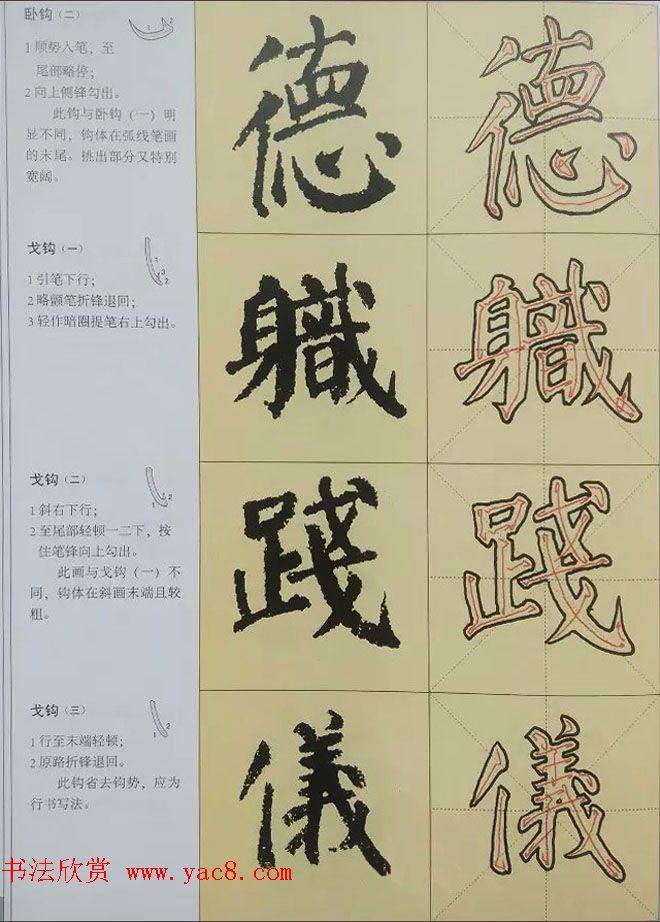 卧钩（二）
1 顺势入笔，至
尾部略停；
2 向上侧锋勾出。
此钩与卧钩（一）明
显不同，钩体在弧线笔画
的末尾。挑出部分又特别
宽阔。
德
德
戈钩（一）
1 引笔下行；
2 略颤笔折锋退回；
3 轻作暗圈提笔右上勾出。
軄
軄
戈钩（二）
1 斜右下行；
2 至尾部轻顿一二下，按
住笔锋向上勾出。
此画与戈钩（一）不
同，钩体在斜画末端且较
粗。
踐
踐
戈钩（三）
1 行至末端轻顿；
2 原路折锋退回。
此钩省去钩势，应为
行书写法。
儀
儀
书法欣赏 www.yac8.com